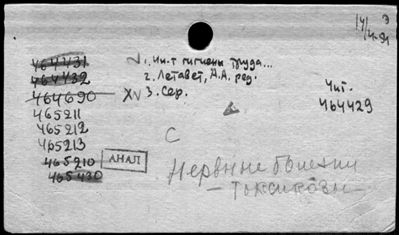 Э
14/
4-94
464431
464432
464690
465211
465212
465213
465210
465430
АНАЛ
1. Ин-т гигиены труда...
2. Летавет, А.А. ред.
XV 3. Сер.
Чит.
464429
С
Нервные болезни
— токсикозы —